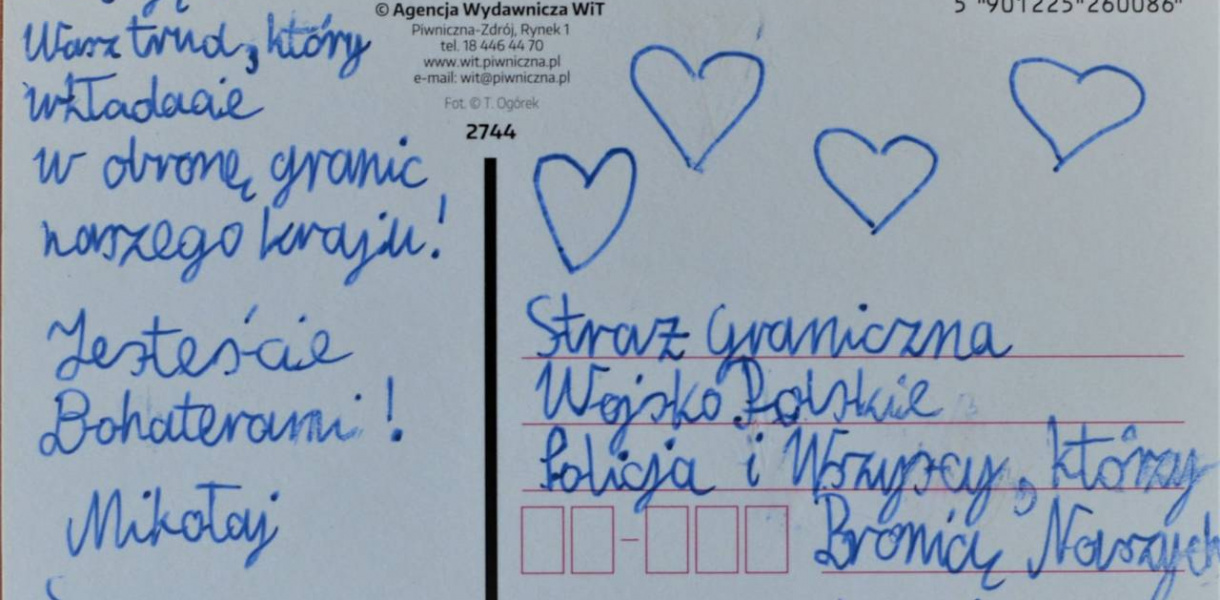 Wasz trud, który
wkładacie
w obronę granic
naszego kraju!
Jesteście
Bohaterami!
Mikołaj
© Agencja Wydawnicza WiT
Piwniczna-Zdrój, Rynek 1
tel. 18 446 44 70
www.wit.piwniczna.pl
e-mail: wit@piwniczna.pl
Fot. © T. Ogórek
2744
5 901225 260086
Straż Graniczna
Wojsko Polskie
Policja i Wszyscy, którzy
Bronią Naszych